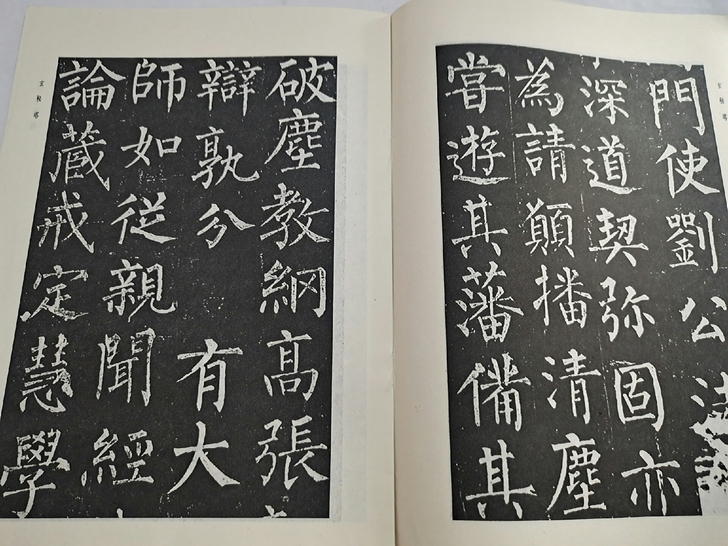 玄秘塔
門使劉公法
深道契弥固亦
為請願播清塵
甞遊其藩備其
破塵教網高張
辯孰分 有大
師如從親聞經
論藏戒定慧學
玄秘塔